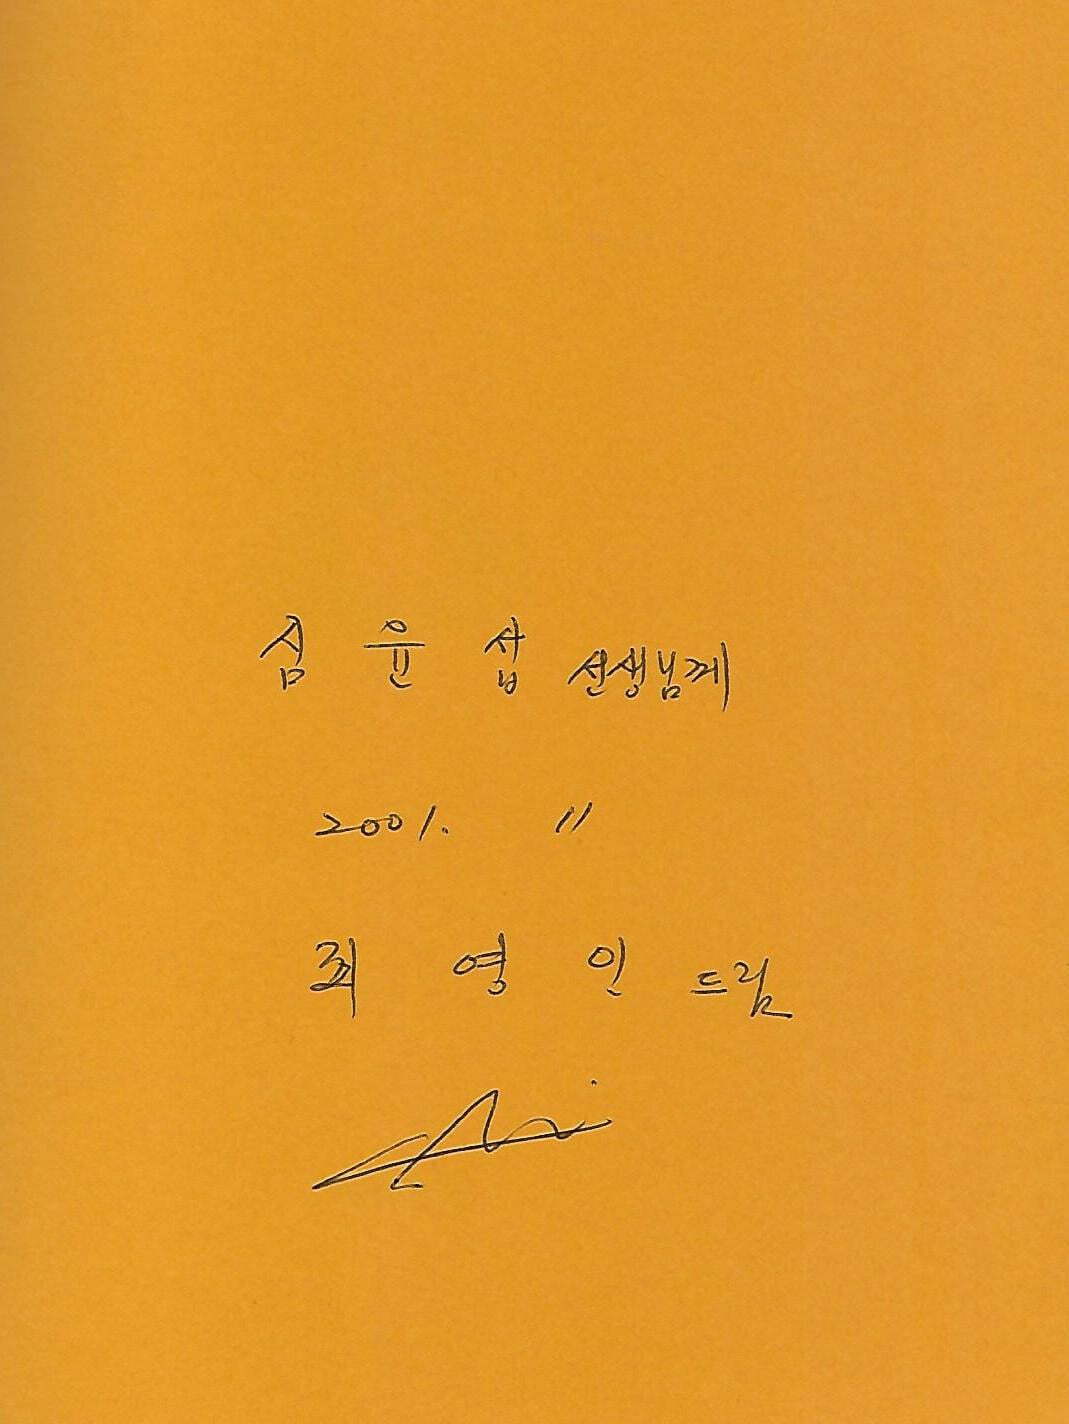 심 윤 섭 선생님께
2001. 11
최 영 인 드림